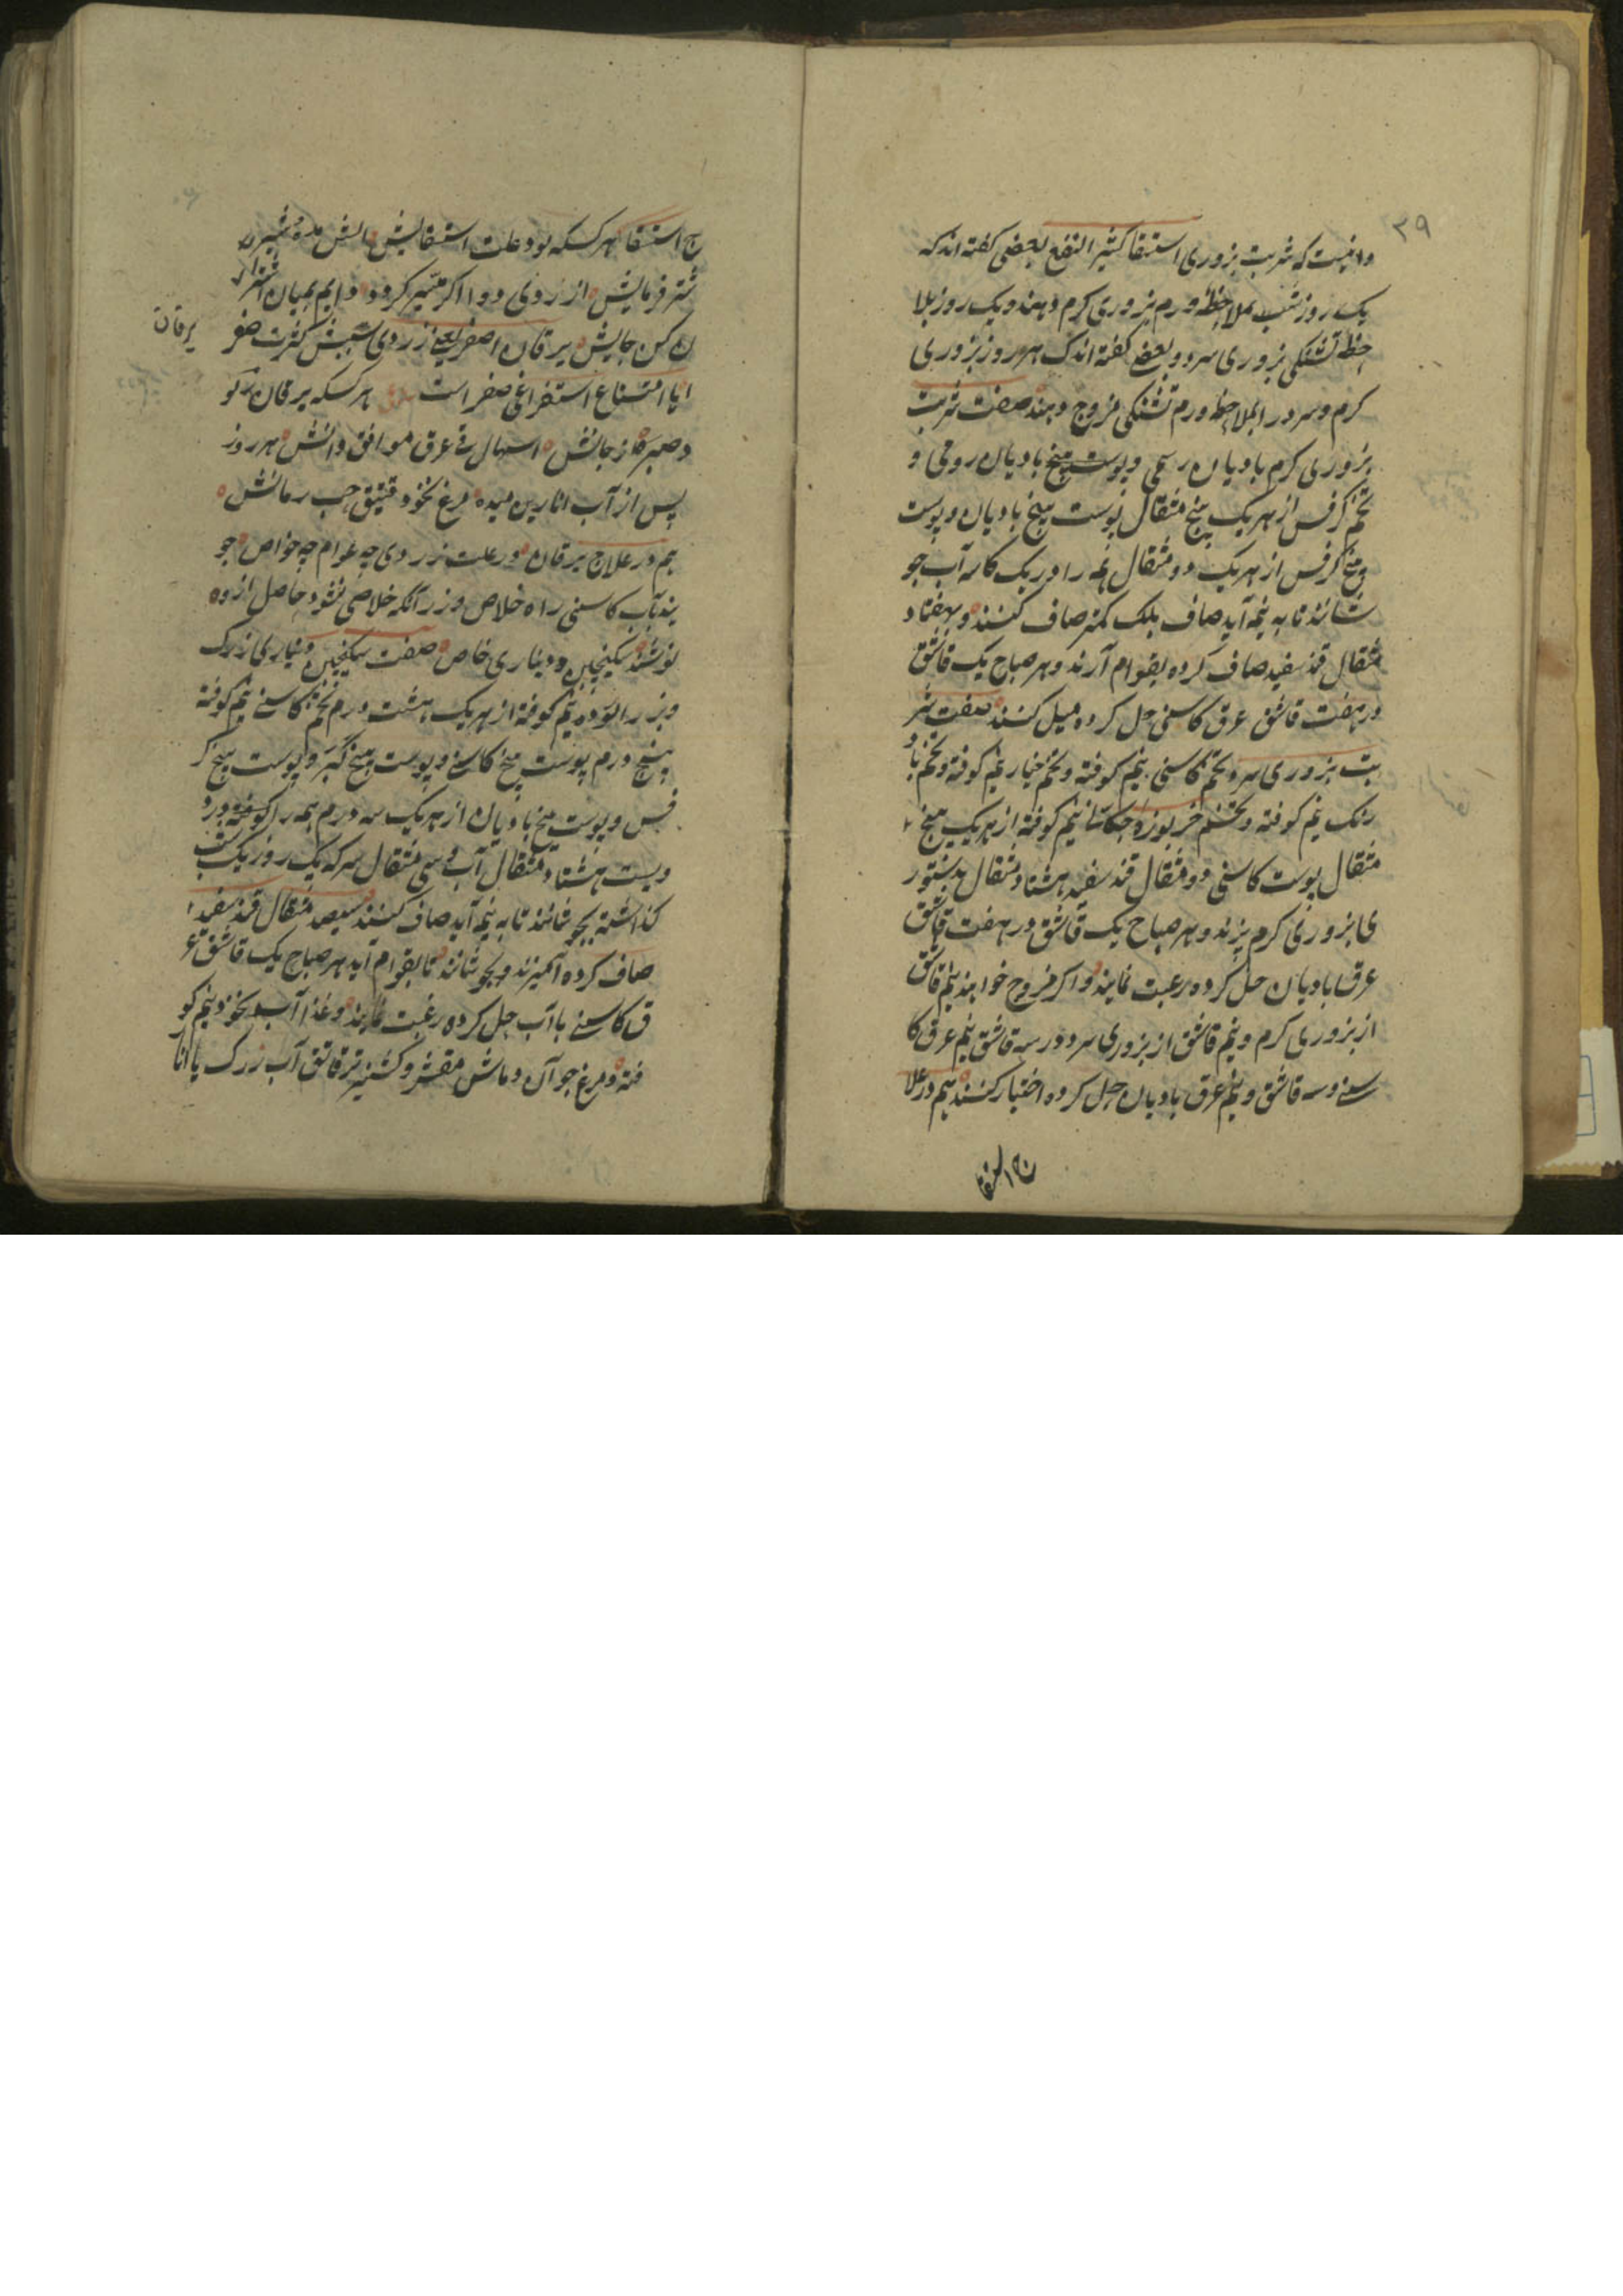 ۳۹
دانیست که شربت بزوری استسقا کثیر النفع بعضی گفته اند که
یک روز شب بملاحظه ورم بزوری کرم دهند و یک روز بملا
حظه تشنکی بزوری سرد و بعضی گفته اند که هر روز بزوری
کرم و سرد را بملاحظه ورم تشنکی مزوج دهند صفت شربت
بزوری کرم بادیان رسمی و پوست بیخ بادیان رومی و
تخم کرفس از هریک پنج مثقال پوست بیخ بادیان و پوست
بیخ کرفس از هریک دو مثقال همه را در یک کاسه آب جو
شانند تا به نیمه آید صاف بلک کمتر صاف کنند و بهفتاد
مثقال قند سفید صاف کرده بقوام آرند و هر صباح یک قاشق
در هفت قاشق عرق کاسنی حل کرده میل کنند صفت شر
بت بزوری سرد تخم کاسنی نیم کوفته و تخم خیار نیم کوفته و تخم با
رنک نیم کوفته و تخم خربوزه نیم کوفته از هریک پنج
مثقال پوست کاسنی دو مثقال قند سفید هشتاد مثقال بدستور
ی بزوری کرم پزند و هر صباح یک قاشق در هفت قاشق
عرق بادیان حل کرده رغبت نمایند و اکر مزوج خواهند نیم قاشق
از بزوری کرم و نیم قاشق از بزوری سرد در سه قاشق نیم عرق کا
سنی و سه قاشق و نیم عرق بادیان حل کرده اختیار کنند هم در علا
ج استسقا
ج استسقا هر کسکه بود علت استسقایش مالش مده شیر
شتر فرمایش از روی دوا اکر میسر کردد دایم بمیان
ن کن جایش یرقان اصفر یعنی زردی سببش کثرت صفر
یرقان
ا یا امتناع استفراغ صفر است هر کسکه یرقان کو
د صبر از جانش اسهال قی عرق موافق دانش هر روز
پس از آب انارین میده مرغ نخود قتیق حب رمانش
هم در علاج یرقان در علت زردی چه عوام چه خواص جو
یند بآب کاسنی راه خلاص وز آنکه خلاصی نشود حاصل ازو
نوشند سکنجبین دیناری خاص صفت سکنجبین دیناری زرک
و بزر نیم کوفته از هریک هشت درم تخم کاسنی نیم کوفته
پنج درم پوست بیخ کاسنی و پوست بیخ کبر و پوست بیخ کر
فس و پوست بیخ بادیان از هریک سه درم همه را کوفته در د
ویست هشتاد مثقال آب و سی مثقال سرکه یک روز یک شب
کذاشته بجوشانند تا به نیمه آید صاف کنند سیصد مثقال قند سفید
صاف کرده آمیزند و بجوشانند تا بقوام آید هر صباح یک قاشق عر
ق کاسنی با آب حل کرده رغبت نمایند و غذا آب نخود نیم کو
فته و مرغ جوان و ماش مقشر و کشنیز تر قاتق آب زرک یا انار